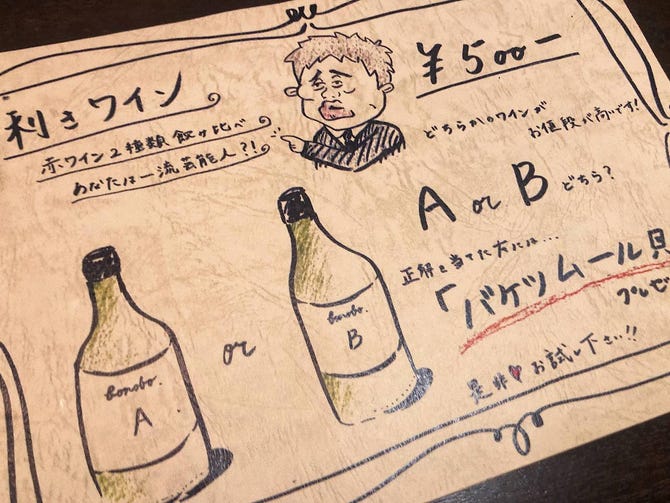 利きワイン
赤ワイン2種類 飲み比べ
あなたは一流芸能人?!
¥500ー
どちらかのワインが
お値段が高いです!
A or B どちら?
正解を当てた方には…
「バケツムール貝
プレゼ
是非♥お試し下さい!!
bonobo.
A
or
bonobo.
B